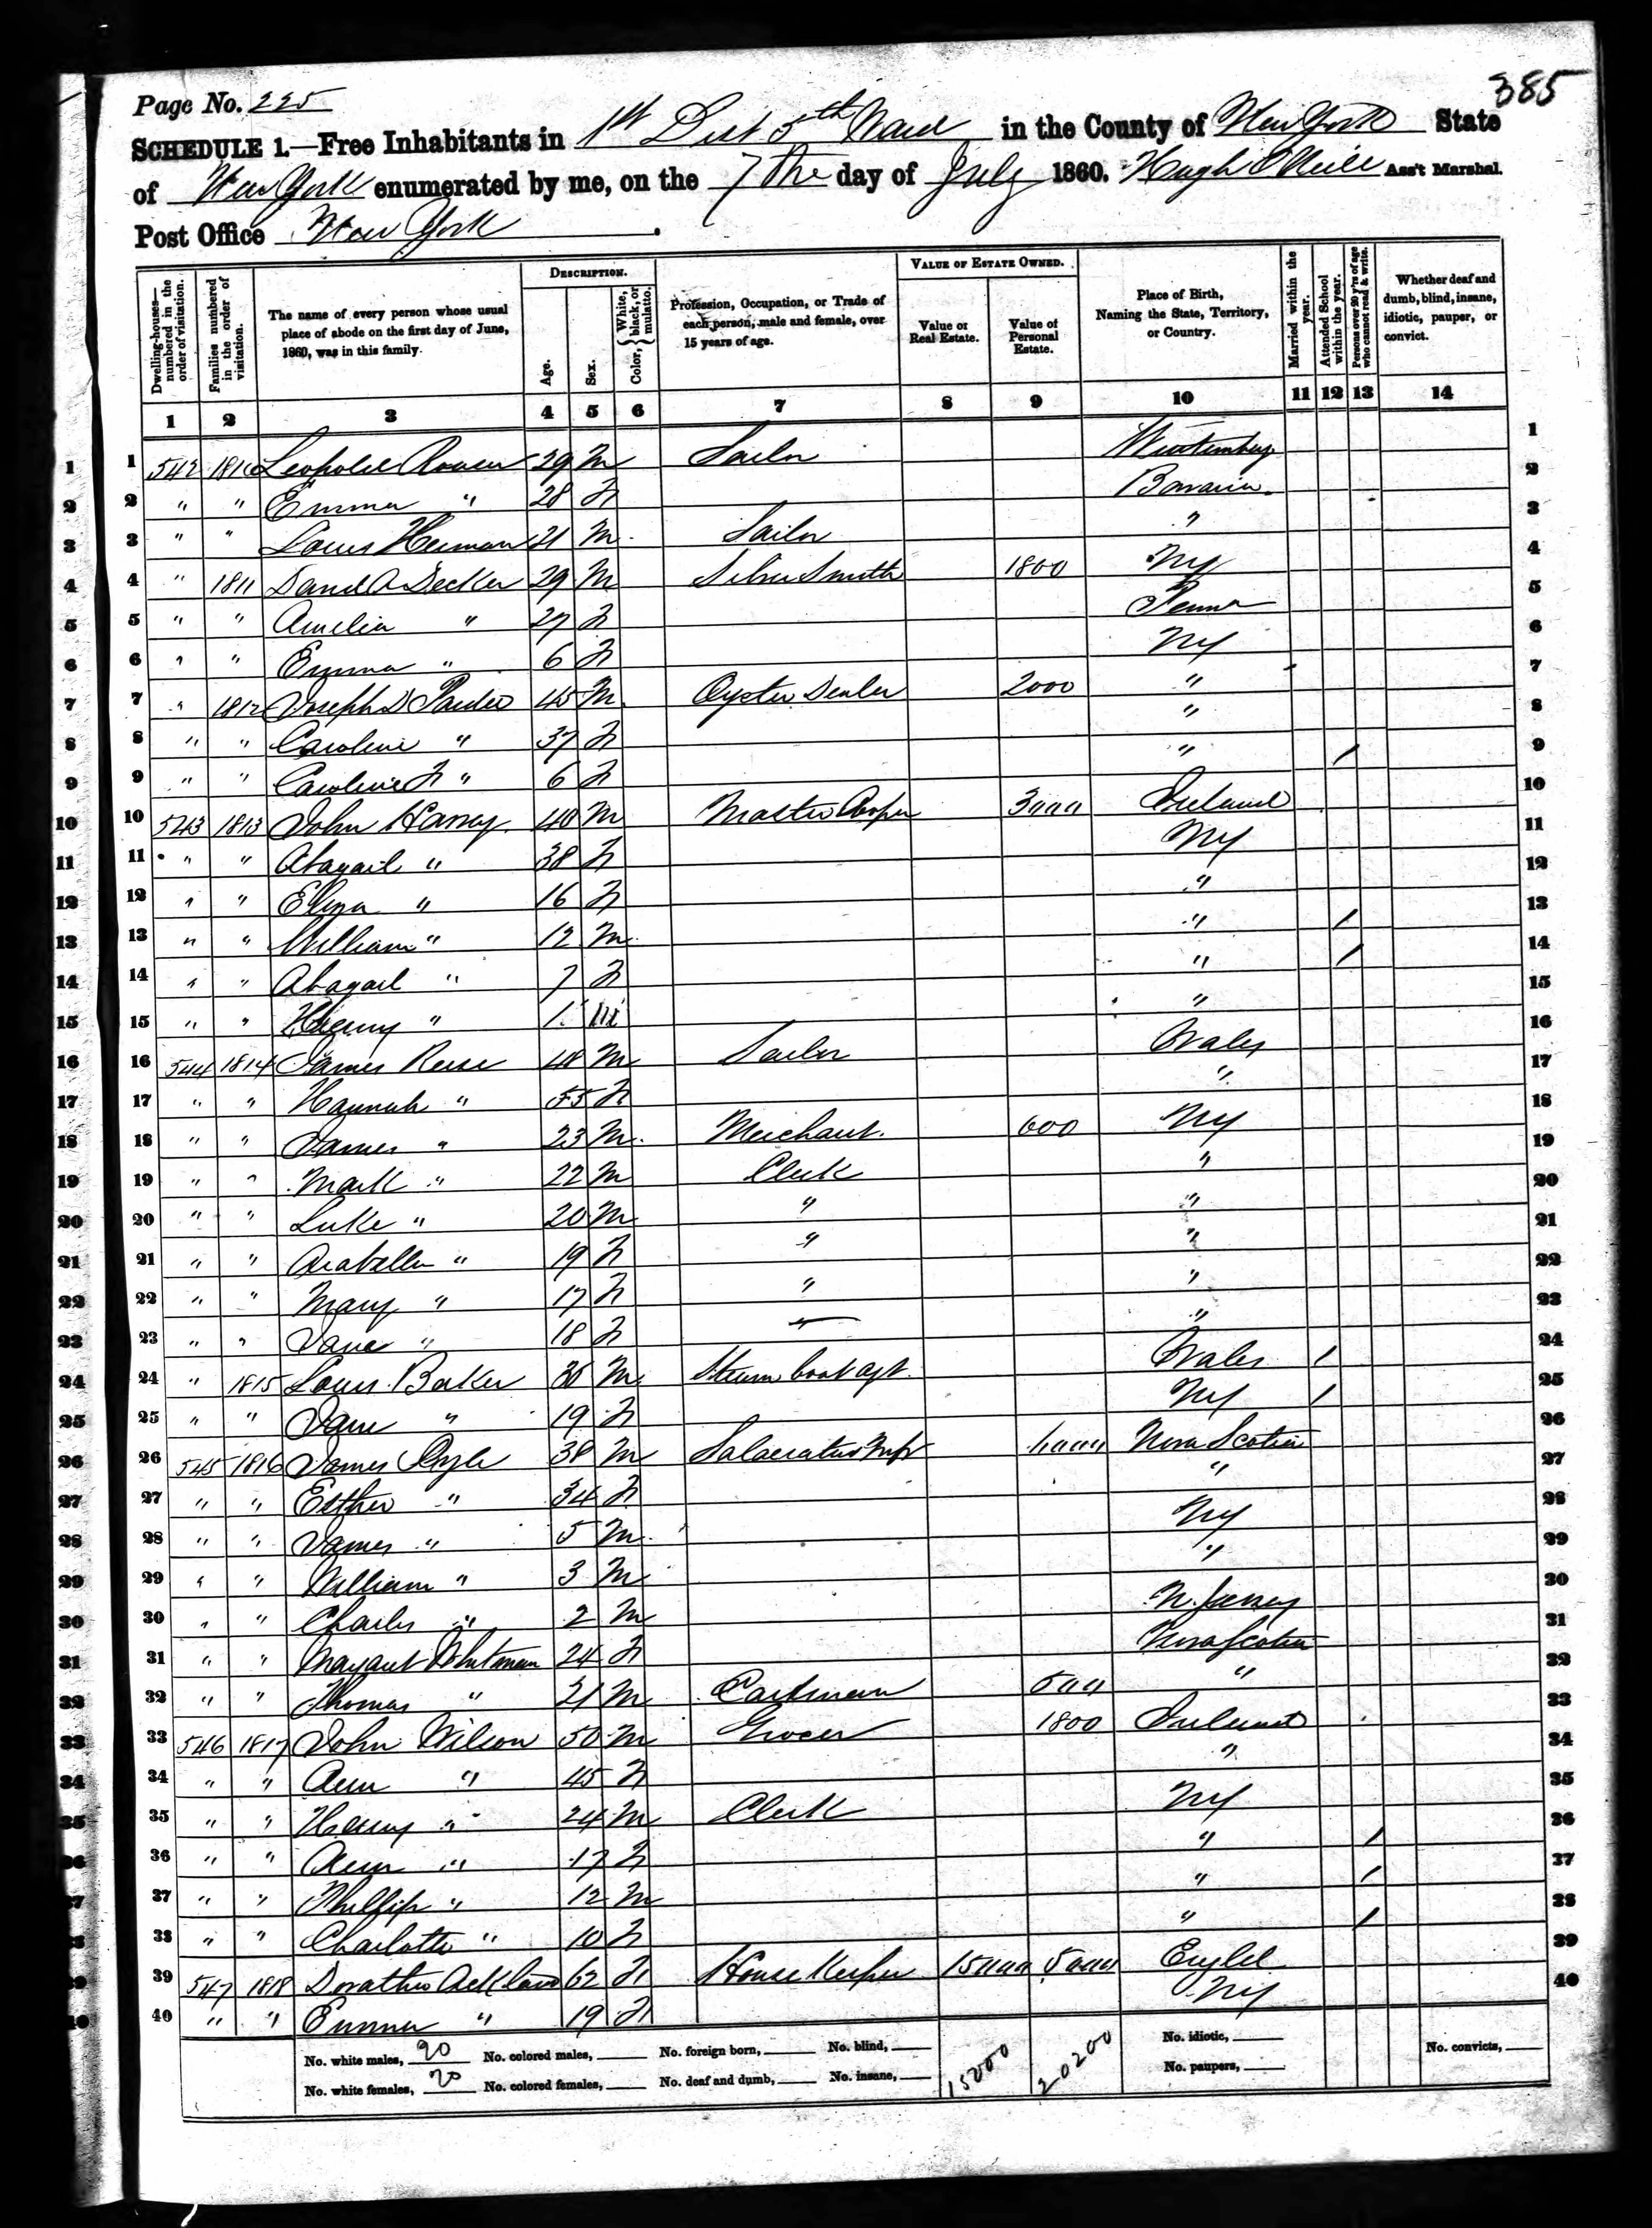 385
Page No. 225
SCHEDULE 1.—Free Inhabitants in 1st Dist 5th Ward in the County of New York State
of New York enumerated by me, on the 7th day of July 1860. Hugh O'Neill Ass't Marshal.
Post Office New York.
DESCRIPTION. VALUE OF ESTATE OWNED.
Dwelling-houses—numbered in the order of visitation. Families numbered in the order of visitation. The name of every person whose usual place of abode on the first day of June, 1860, was in this family. Age. Sex. Color, {White, black, or mulatto. Profession, Occupation, or Trade of each person, male and female, over 15 years of age. Value of Real Estate. Value of Personal Estate. Place of Birth, Naming the State, Territory, or Country. Married within the year. Attended School within the year. Persons over 20 y'rs of age who cannot read & write. Whether deaf and dumb, blind, insane, idiotic, pauper, or convict.
1 2 3 4 5 6 7 8 9 10 11 12 13 14
1 542 1810 Leopold 29 M Wurtemburg 1
2 " " Emma " 28 F Bavaria 2
3 " " Louis Heiman 21 M " 3
4 " 1811 David A Decker 29 M Silver Smith 1800 NY 4
5 " " Amelia " 27 F Penna 5
6 " " Emma " 6 F NY 6
7 " 1812 Joseph D 45 M Oyster Dealer 2000 " 7
8 " " Caroline " 37 F " 8
9 " " Caroline F " 6 F " / 9
10 543 1813 John 40 M Master Cooper 3000 Ireland 10
11 " " Abagail " 38 F NY 11
12 " " Eliza " 16 F " 12
13 " " William " 12 M " / 13
14 " " Abagail " 7 F " / 14
15 " " Henry " 1 M " 15
16 544 1814 James Reese 48 M Wales 16
17 " " Hannah " 55 F " 17
18 " " James " 23 M Merchant 600 NY 18
19 " " Mark " 22 M Clerk " 19
20 " " Luke " 20 M " " 20
21 " " Arabella " 19 F " " 21
22 " " Mary " 17 F " " 22
23 " " Jane " 18 F " " 23
24 " 1815 Louis Baker 36 M Steam boat agt. Wales / 24
25 " " Jane " 19 F NY / 25
26 545 1816 James Pyle 38 M Salaeratus Mfr 6000 Nova Scotia 26
27 " " Esther " 34 F " 27
28 " " James " 5 M NY 28
29 " " William " 3 M " 29
30 " " Charles " 2 M N. Jersey 30
31 " " Margaret Whitman 24 F Nova Scotia 31
32 " " Thomas " 21 M Cartman 500 " 32
33 546 1817 John Wilson 50 M Grocer 1800 Ireland 33
34 " " Ann " 45 F " 34
35 " " Henry " 24 M Clerk NY 35
36 " " Ann " 17 F " / 36
37 " " Phillip " 12 M " / 37
38 " " Charlotte " 10 F " / 38
39 547 1818 Dorathea Ackland 62 F House Keeper 15000 5000 Engld 39
40 " " Emma " 19 F NY 40
No. white males, 20 No. colored males, No. foreign born, No. blind, 15000 20200 No. idiotic, No. convicts,
No. white females, 20 No. colored females, No. deaf and dumb, No. insane, No. paupers,